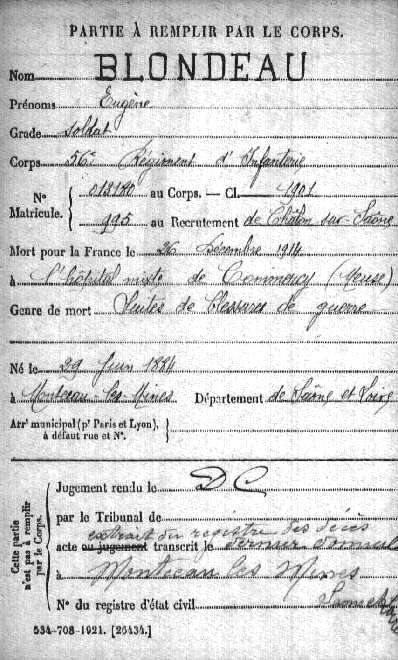 PARTIE À REMPLIR PAR LE CORPS.
Nom BLONDEAU
Prénoms Eugène
Grade soldat
Corps 56e Régiment d'Infanterie
N° Matricule. { 013180 au Corps. — Cl. 1901
995 au Recrutement de Châlon sur Saône
Mort pour la France le 26 Décembre 1914
à l'hôpital mixte de Commercy (Meuse)
Genre de mort Suites de blessures de guerre
Né le 29 Juin 1884
à Montceau-les-Mines Département de Saône et Loire
Arr' municipal (p' Paris et Lyon), }
à défaut rue et N°.
Cette partie n'est pas à remplir par le Corps.
Jugement rendu le D C
par le Tribunal de
extrait du registre des décès
acte ou jugement transcrit le dernier domicile
à Montceau les Mines
Saône et Loire
N° du registre d'état civil
534-708-1921. [26434.]